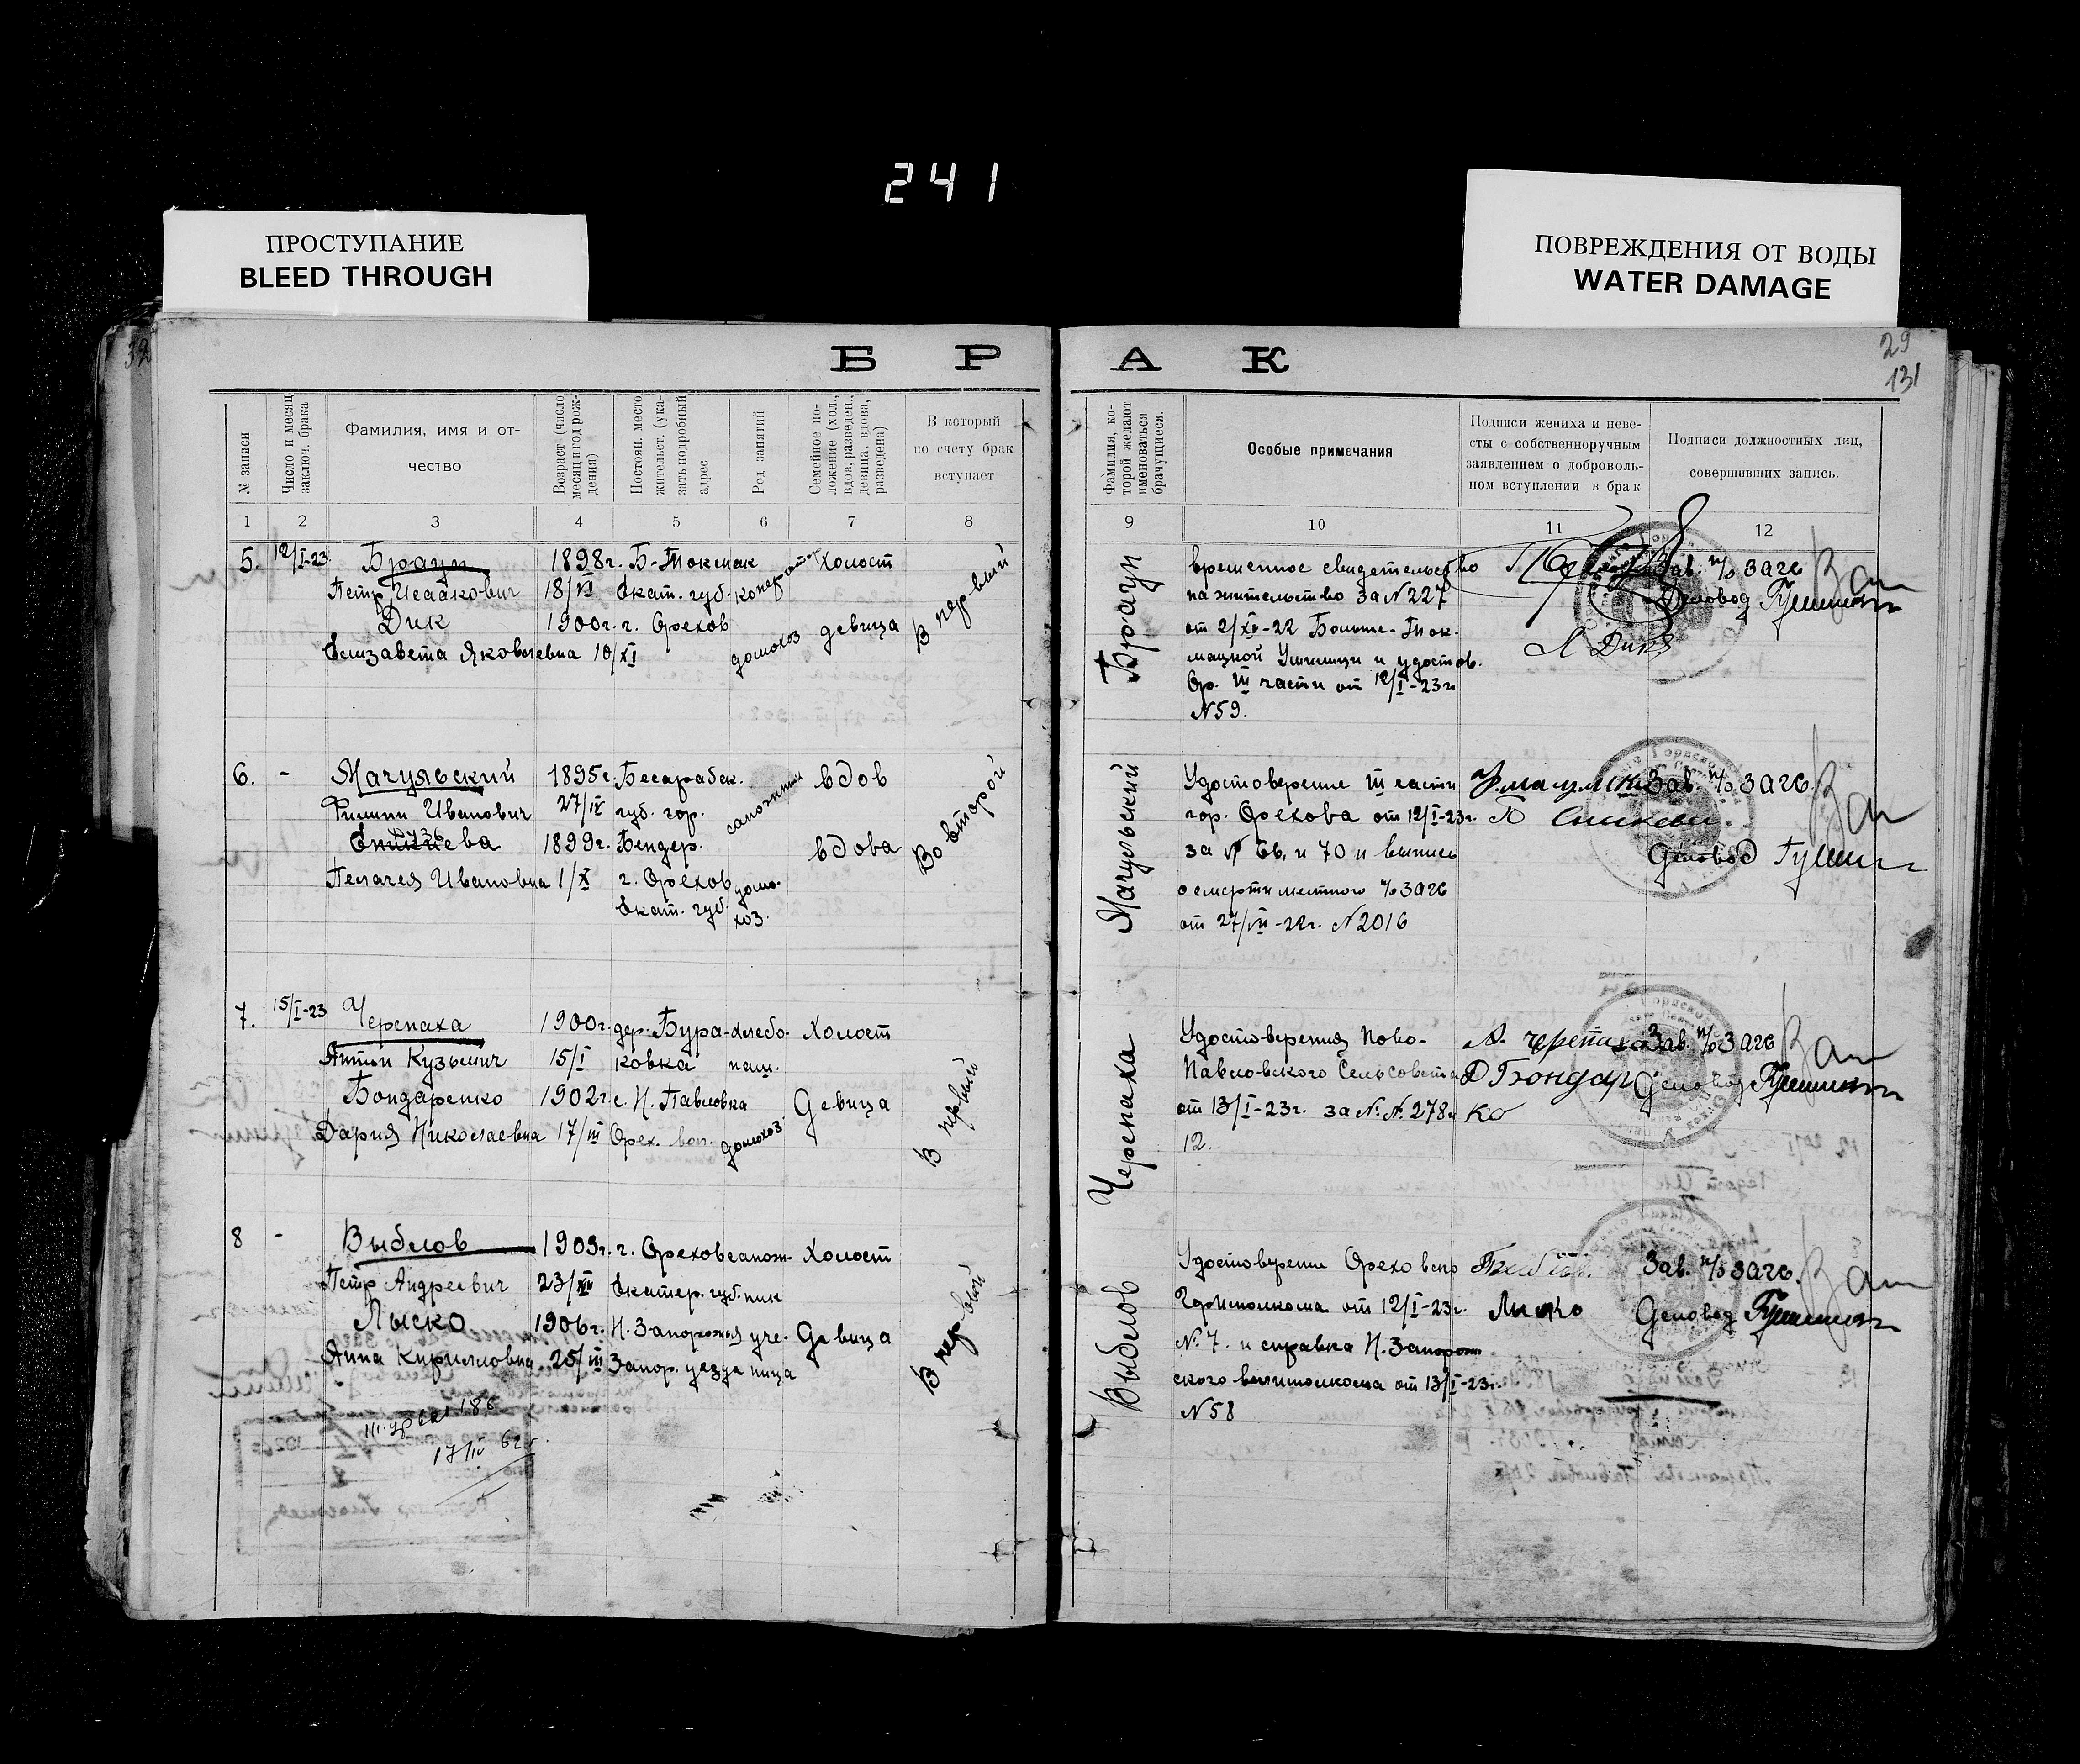 241
ПРОСТУПАНИЕ
BLEED THROUGH
ПОВРЕЖДЕНИЯ ОТ ВОДЫ
WATER DAMAGE
Б Р А К
29
131
№ записи
Число и месяц заключ. брака
Фамилия, имя и от-
чество
Возраст (число месяц и год рож-дения)
Постоян. место жительст. (ука-зать подробный адрес
Род занятий
Семейное по-ложение (хол., вдов, разведен., девица, вдова, разведена)
В который
по счету брак
вступает
1 2 3 4 5 6 7 8
5. 12/I-23 Браун 1898г. Б-Токмак Холост
Петр Исаакович 18/VI Екат. губ.
Дик 1900г. г. Орехов девица
Елизавета Яковлевна 10/XI домохоз
В первый
6. - Мачульский 1895г. Бесарабск. вдов
Филипп Иванович 27/IV губ. гор.
1899г. Бендер. вдова
Пелагея Ивановна 1/X г. Орехов домо-
Екат. губ. хоз.
Во второй
7. 15/I-23 Черепаха 1900г. дер. Бура- хлебо- Холост
Антон Кузьмич 15/I ковка паш.
Бондаренко 1902г. с. Н. Павловка Девица
Дария Николаевна 17/III Орех. вол. домохоз
В первый
8 - Выблов 1903г. г. Орехов сапож- Холост
Петр Андреевич 23/XII Екатер. губ. ник
Лыско 1906г. Н. Запорожья уче- Девица
Анна Кирилловна 25/III Запор. уезда ница
В первый
17/IV 62г.
Фамилия, ко-торой желают именоваться брачущиеся.
Особые примечания
Подписи жениха и неве-
сты с собственноручным
заявлением о доброволь-
ном вступлении в брак
Подписи должностных лиц,
совершивших запись.
9 10 11 12
Браун
временное свидетельство
на жительство за N 227
от 2/XII-22 Больше-Ток-
мацкой и удостов.
Ор. III части от 12/I-23г
N 59.
Дик
Зав. п/о Загс
Деловод
Мачульский
Удостоверение III части
гор. Орехова от 12/I-23г.
за № 66, и 70 и выпись
о смерти местного п/о Загс
от 27/VII-22г. N 2016
Зав. п/о Загс
Деловод
Черепаха
Удостоверения Ново-
Павловского Сельсовета
от 13/I-23г. за N. N. 278 и
12.
А. черепаха
Д Бондар
ко
Зав. п/о Загс
Деловод
Выблов
Удостоверение Ореховско
Горисполкома от 12/I-23г.
N. 7. и справка Н. Запорож
ского волисполкома от 13/I-23г.
N 58
Лиско
Зав. п/о Загс.
Деловод